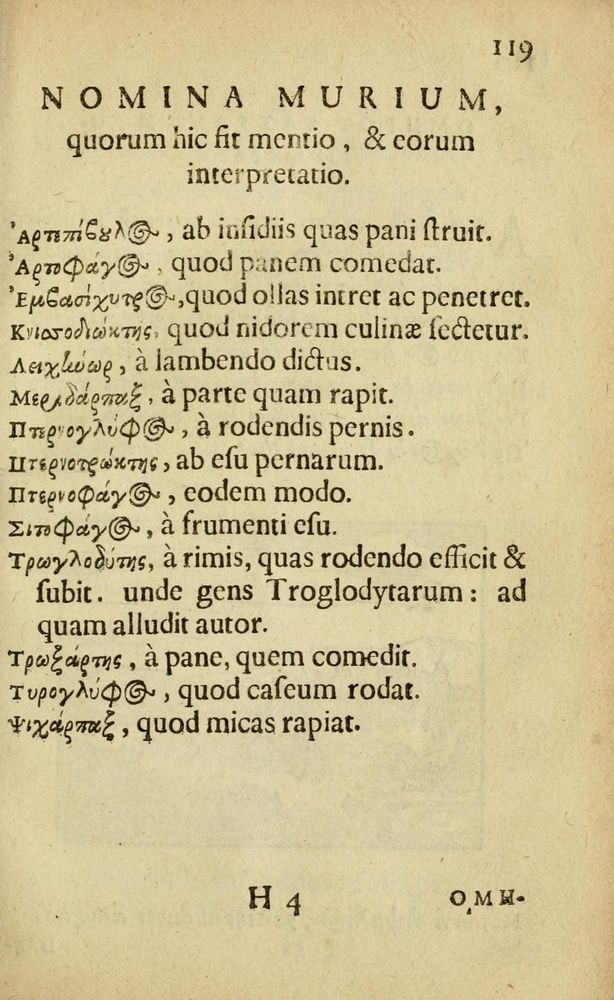 119
NOMINA MURIUM,
quorum hic fit mentio, & eorum
interpretatio.
Ἀρτεπίβουλος, ab insidiis quas pani struit.
Ἀρτοφάγος, quod panem comedat.
Ἐμβασίχυτρος, quod ollas intret ac penetret.
Κνισσοδιώκτης, quod nidorem culinæ sectetur.
Λειχήνωρ, à lambendo dictus.
Μεριδάρπαξ, à parte quam rapit.
Πτερνογλύφος, à rodendis pernis.
Πτερνοτρώκτης, ab esu pernarum.
Πτερνοφάγος, eodem modo.
Σιτοφάγος, à frumenti esu.
Τρωγλοδύτης, à rimis, quas rodendo efficit &
subit. unde gens Troglodytarum: ad
quam alludit autor.
Τρωξάρτης, à pane, quem comedit.
Τυρογλύφος, quod caseum rodat.
Ψιχάρπαξ, quod micas rapiat.
H 4 ΟΜΗ-